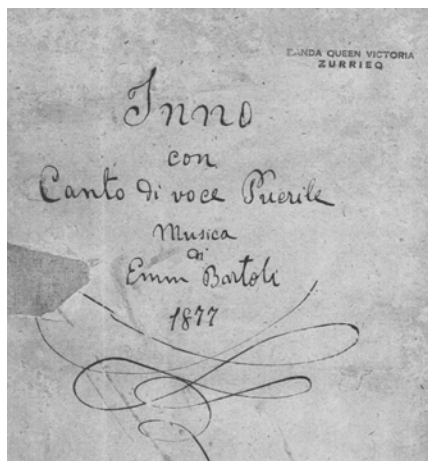 BANDA QUEEN VICTORIA
ZURRIEQ
Inno
con
Canto di voce Puerile
Musica
di
Emm Bartoli
1877